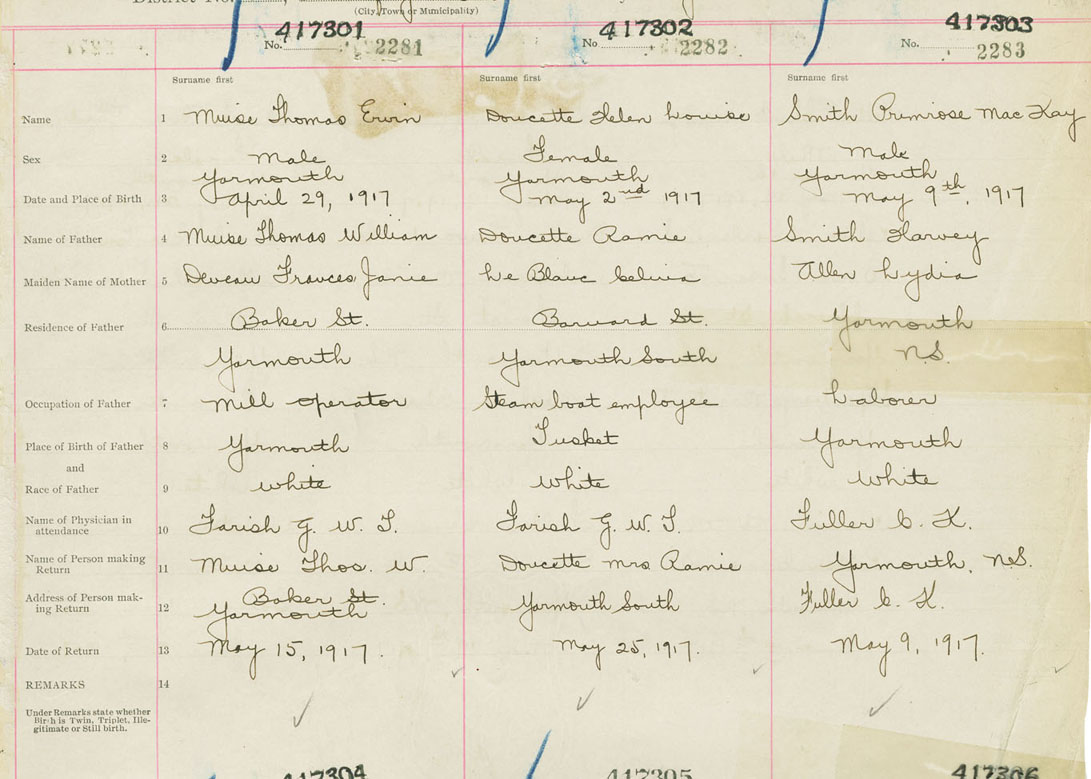 District No.
(City, Town or Municipality)
417301 417302 417303
No. 2281 No. 2282 No. 2283
Surname first Surname first Surname first
Name 1 Muise Thomas Ervin Doucette Helen Louise Smith Primrose MacKay
Sex 2 Male Female Male
Yarmouth Yarmouth Yarmouth
Date and Place of Birth 3 April 29, 1917 May 2nd 1917 May 9th, 1917
Name of Father 4 Muise Thomas William Doucette Ramie Smith Harvey
Maiden Name of Mother 5 Deveau Frances Janie Le Blanc Allen Lydia
Residence of Father 6 Baker St. St. Yarmouth
Yarmouth Yarmouth South N.S.
Occupation of Father 7 Mill operator Steam boat employee Laborer
Place of Birth of Father 8 Yarmouth Tusket Yarmouth
and
Race of Father 9 White White White
Name of Physician in
attendance 10 Farish G. W. T. Farish G. W. T. Fuller C. K.
Name of Person making
Return 11 Muise Thos. W. Doucette Mrs Ramie Yarmouth, N.S.
Address of Person mak-
ing Return 12 Baker St. Yarmouth South Fuller C. K.
Yarmouth
Date of Return 13 May 15, 1917. May 25, 1917. May 9, 1917.
REMARKS 14
Under Remarks state whether
Birth is Twin, Triplet, Ille-
gitimate or Still birth.
417304 417305 417306